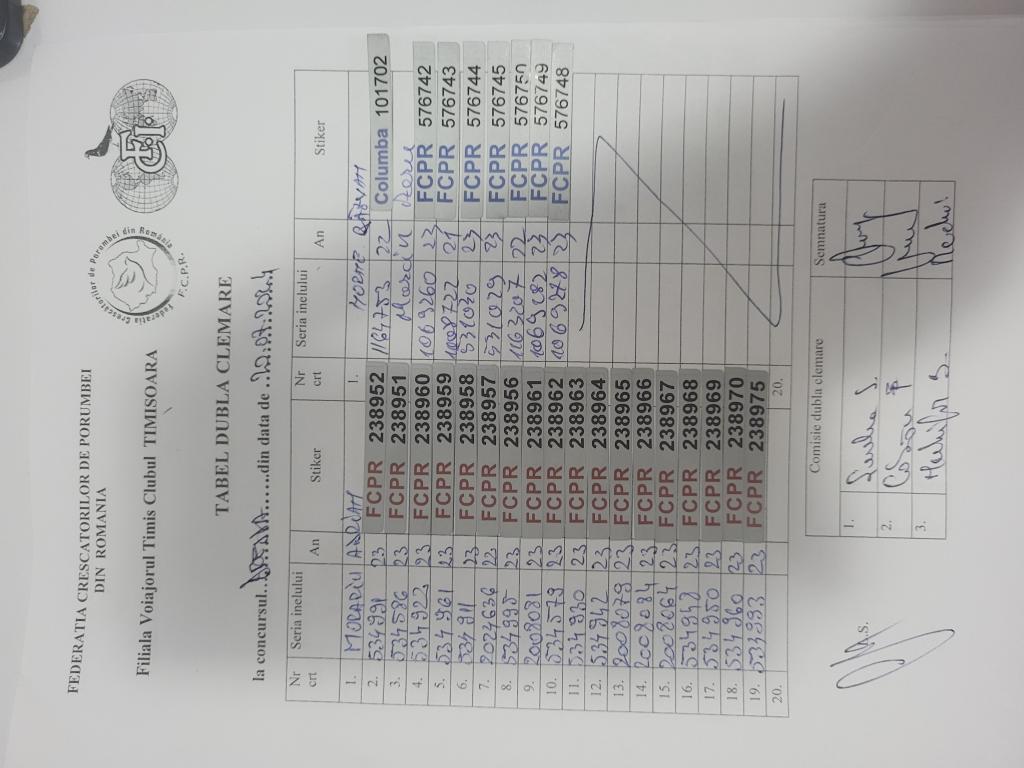 FEDERATIA CRESCATORILOR DE PORUMBEI
DIN ROMANIA
Filiala Voiajorul Timis Clubul TIMISOARA
Federatia Crescatorilor de Porumbei din România
F.C.P.R.
FCI
TABEL DUBLA CLEMARE
la concursul.. .......din data de ..22.07.2024
Nr crt Seria inelului An Stiker Nr crt Seria inelului An Stiker
1. MODARIU ADRIAN 1. MODRE RĂZVAN
2. 534991 23 FCPR 238952 1164753 22 Columba 101702
3. 534586 23 FCPR 238951 Marcău Doru
4. 534923 23 FCPR 238960 1069260 23 FCPR 576742
5. 534961 23 FCPR 238959 1008722 21 FCPR 576743
6. 534911 23 FCPR 238958 531030 23 FCPR 576744
7. 2024636 22 FCPR 238957 531029 23 FCPR 576745
8. 534995 23 FCPR 238956 1163207 22 FCPR 576750
9. 2008081 23 FCPR 238961 1069282 23 FCPR 576749
10. 534579 23 FCPR 238962 1069278 23 FCPR 576748
11. 534930 23 FCPR 238963
12. 534942 23 FCPR 238964
13. 2008079 23 FCPR 238965
14. 2008084 23 FCPR 238966
15. 2008664 23 FCPR 238967
16. 534948 23 FCPR 238968
17. 534950 23 FCPR 238969
18. 534960 23 FCPR 238970
19. 534993 23 FCPR 238975
20. 20.
Comisie dubla clemare Semnatura
1.
2.
3.